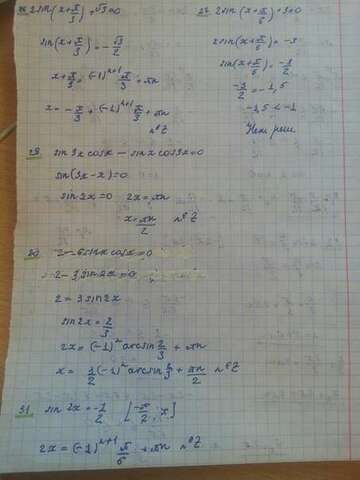 26. 2sin(x+π/3)+√3=0
sin(x+π/3)=-√3/2
x+π/3=(-1)ⁿ⁺¹ π/3+πn
x=-π/3+(-1)ⁿ⁺¹ π/3+πn
n∈Z
27. 2sin(x+π/6)+3=0
2sin(x+π/6)=-3
sin(x+π/6)=-3/2
-3/2=-1,5
-1,5<-1
Нет реш
29 sin3x cosx - sinx cos3x=0
sin(3x-x)=0
sin2x=0 2x=πn
x=πn/2 n∈Z
30 2-6sinx cosx=0
2-3sin2x=0
2=3sin2x
sin2x=2/3
2x=(-1)ⁿ arcsin 2/3+πn
x=1/2(-1)ⁿ arcsin 2/3+πn/2 n∈Z
31 sin2x=-1/2 [-π/2;π]
2x=(-1)ⁿ⁺¹ π/6+πn n∈Z